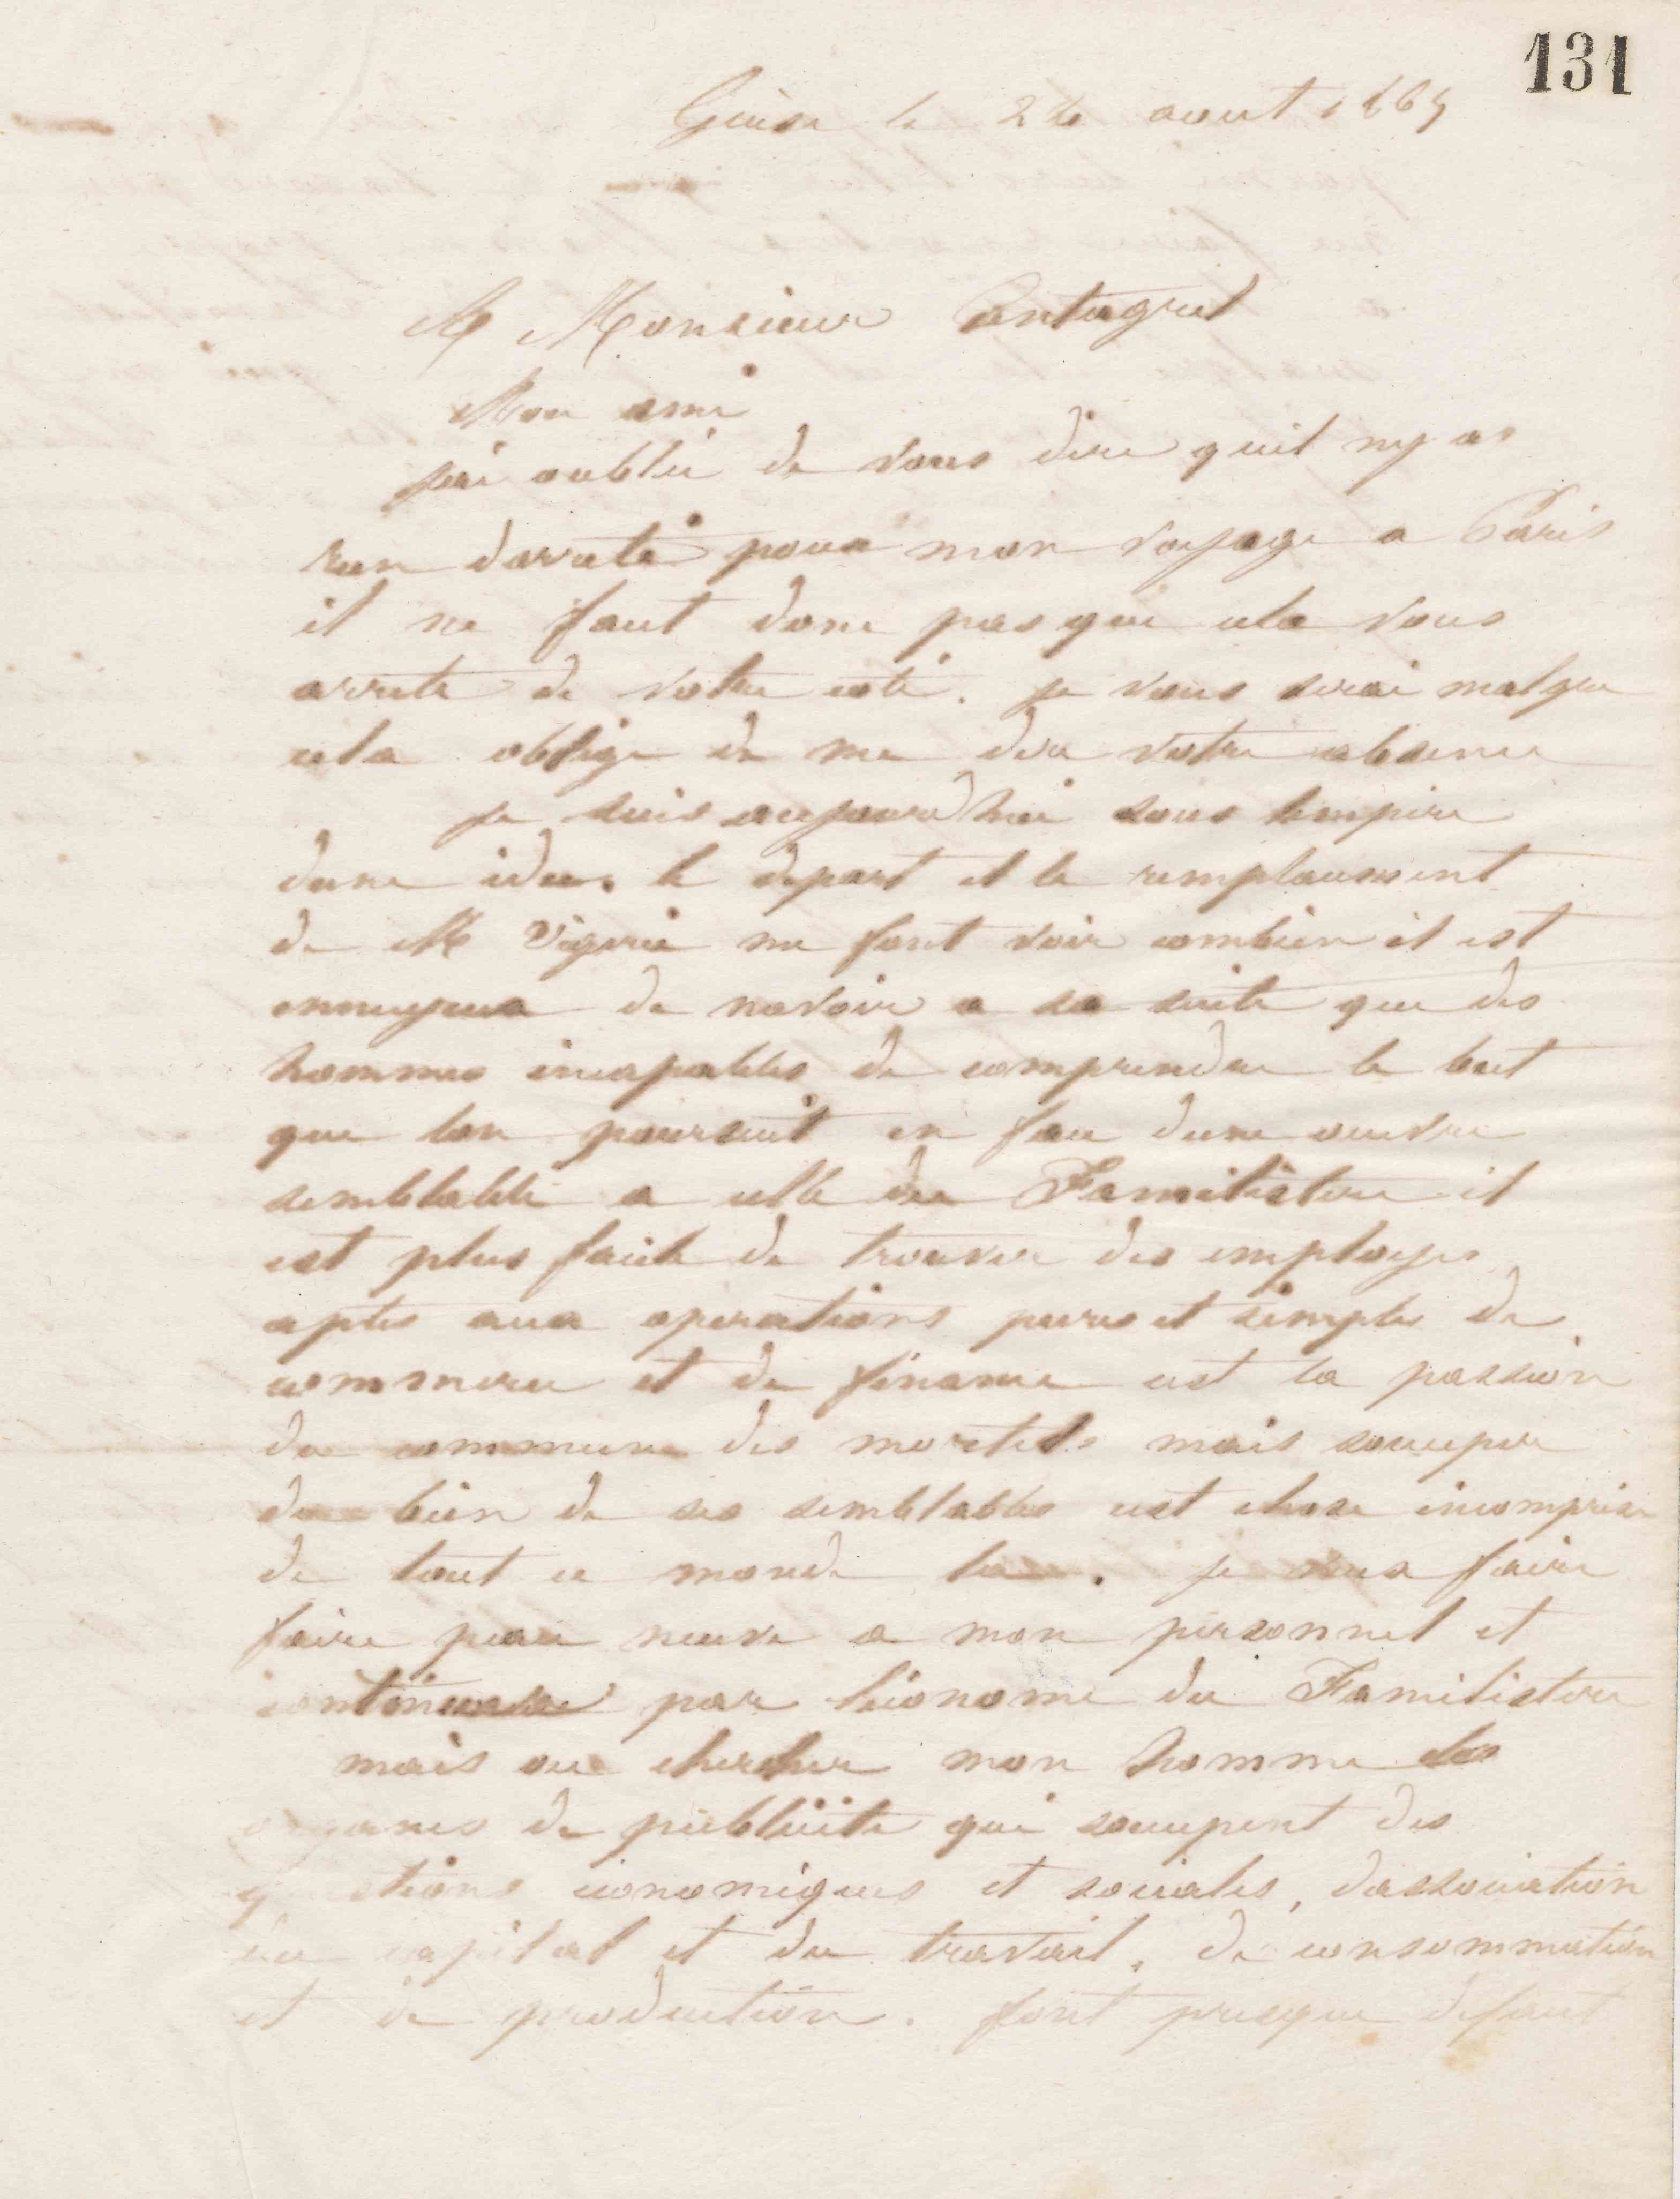 131
Guise le 26 aout 1865
A Monsieur Cantagrel
Mon ami
jai oublié de vous dire quil ny as
rien darreté pour mon voyage a Paris
il ne faut donc pas que cela vous
arrete de votre coté. je vous serai malgre
cela oblige de me dire votre absence
je suis aujourdhui sous lempire
dune idee. le depart et le remplacement
de M Vigerie me font voir combien il est
ennuyeux de navoir a sa suite que des
hommes incapables de comprendre le but
que lon poursuit en face dune oeuvre
semblable a celle du Familistere il
est plus facile de trouver des employes
aptes aux operations pures et simples de
commerce et de finance cest la passion
du commun des mortels mais soccuper
du bien de ses semblables cest chose incomprise
de tout ce monde la. je veux faire
faire peau neuve a mon personnel et
par léconome du Familistere
mais ou chercher mon homme les
organes de publicite qui soccupent des
questions economiques et sociales, dassociation
du capital et du travail, de consommation
et de production. font presque defaut